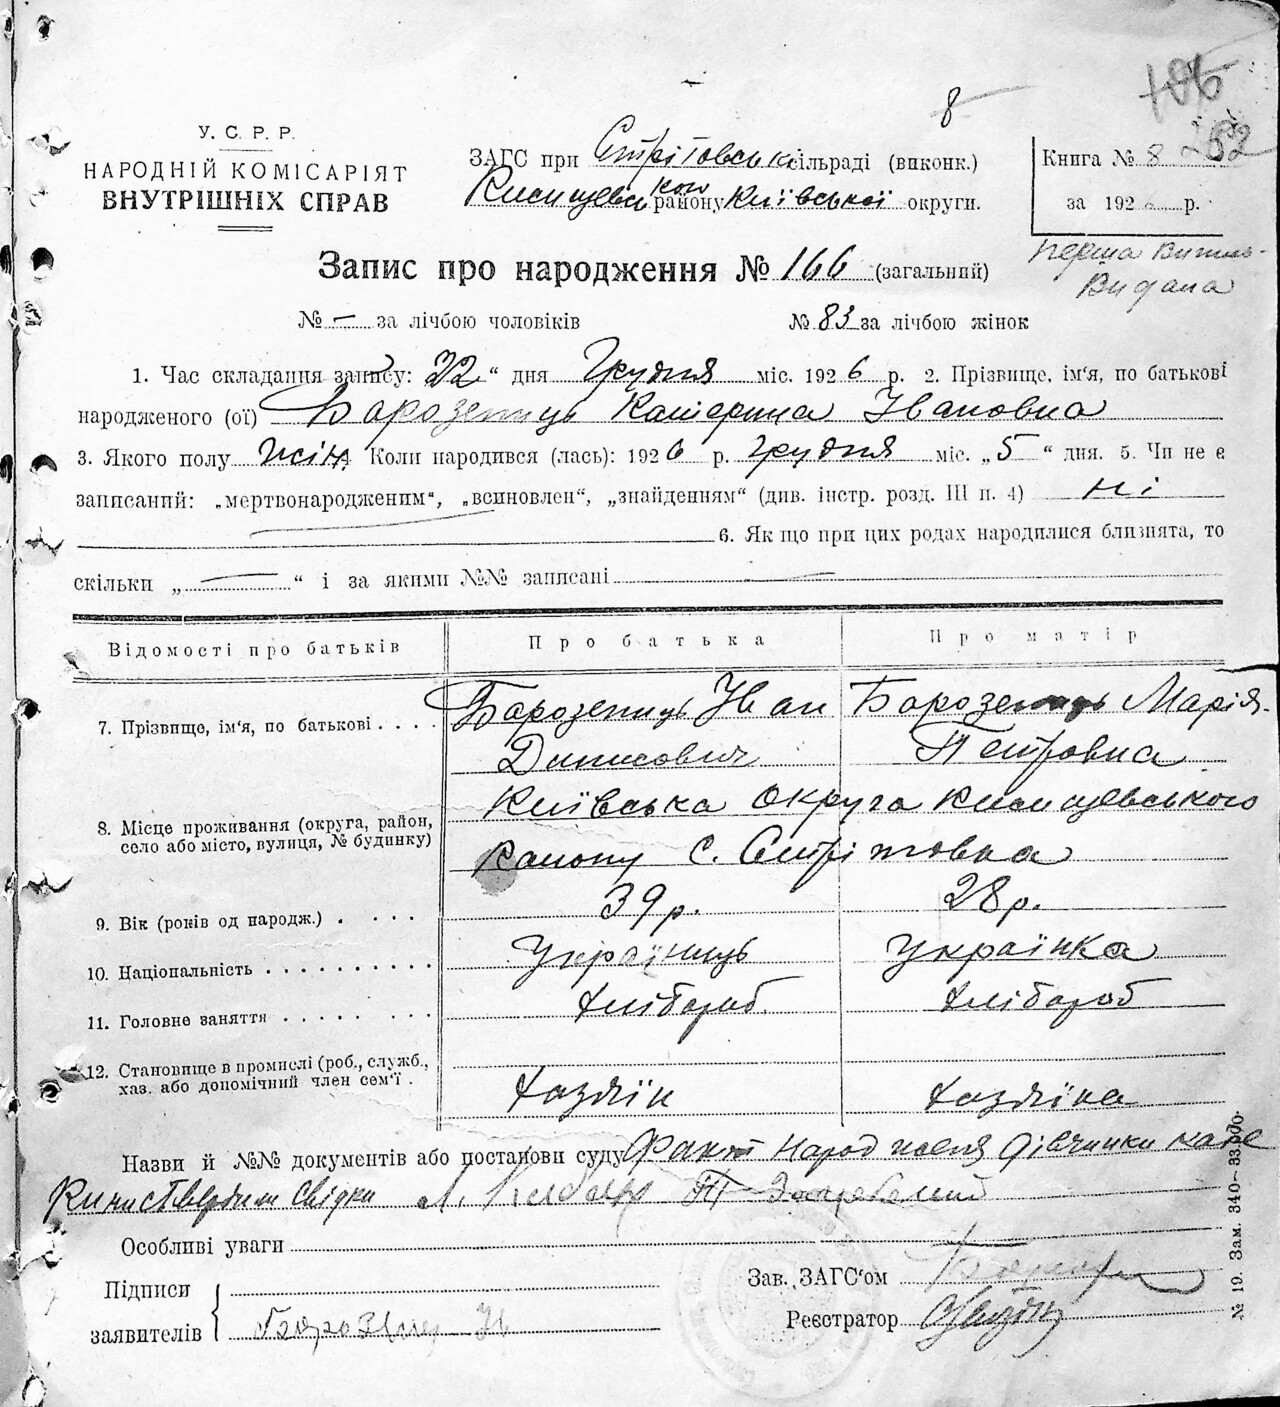 8
106
252
У. С. Р. Р.
НАРОДНІЙ КОМІСАРІЯТ
ВНУТРІШНІХ СПРАВ
ЗАГС при Стрітовській сільраді (виконк.)
Кагарлицького району Київської округи.
Книга № 8
за 1926 р.
перша витяг
Видана
Запис про народження № 166 (загальний)
№ — за лічбою чоловіків № 83 за лічбою жінок
1. Час складання запису: 22 “ дня Грудня міс. 1926 р. 2. Прізвище, ім'я, по батькові
народженого (ої) Барозенець Катерина Івановна
3. Якого полу жін. Коли народився (лась): 1926 р. грудня міс. „ 5 “ дня. 5. Чи не є
записаний: „мертвонародженим“, „всиновлен“, „знайденням“ (див. інстр. розд. III п. 4) ні
6. Як що при цих родах народилися близнята, то
скільки „ — “ і за якими №№ записані —
Відомості про батьків Про батька Про матір
7. Прізвище, ім'я, по батькові . . . . Барозенець Іван Барозенець Марія
Динисович Петровна
8. Місце проживання (округа, район,
село або місто, вулиця, № будинку)
Київська округа
району с. Стрітовка
9. Вік (років од народж.) . . . . 39 р. 28 р.
10. Національність . . . . . . . . . . Українець Українка
11. Головне заняття . . . . . . . . Хлібороб Хлібороб
12. Становище в промислі (роб., служб.,
хаз. або допомічний член сем'ї .
Хазяїн Хазяїна
Назви й №№ документів або постанови суду Факт народження дівчинки
ствердили свідки
Особливі уваги
Підписи
заявителів
Зав. ЗАГС'ом
Реєстратор
№ 19. Зам. 340—33.000.